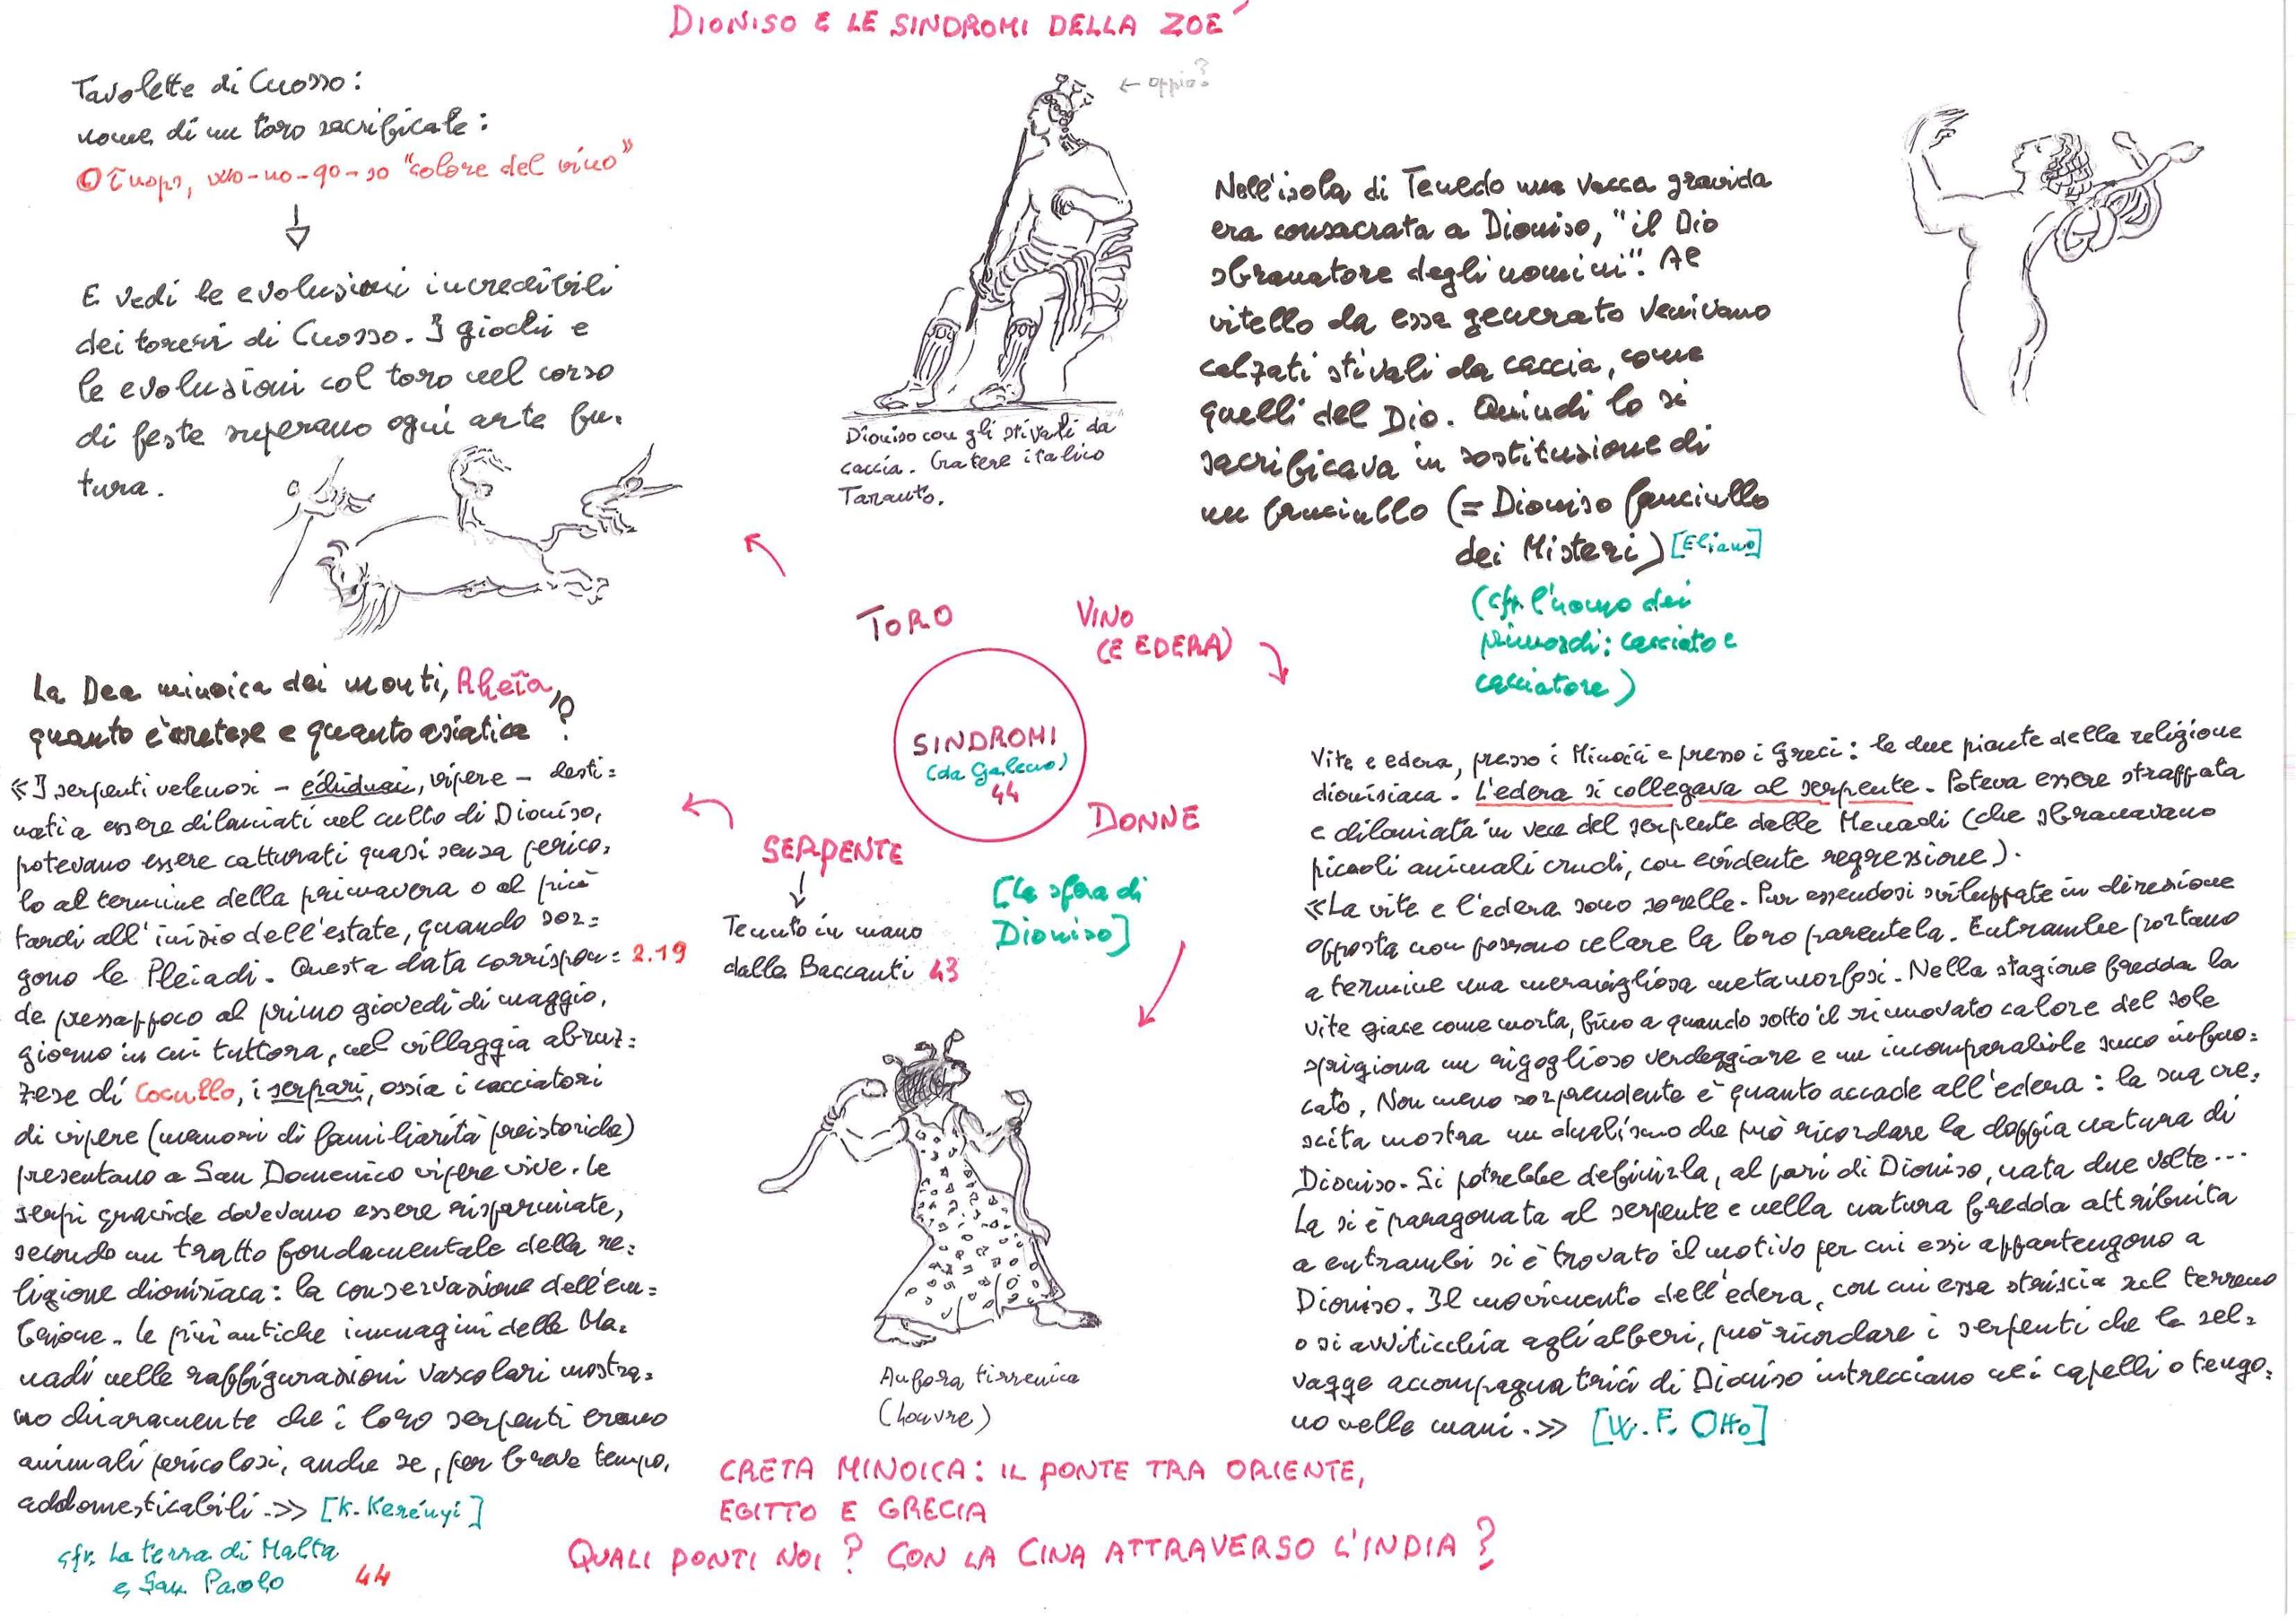 DIONISO E LE SINDROMI DELLA ZOE´
Tavolette di Cnosso:
nome di un toro sacrificale:
wo-no-qo-so "colore del vino"
E vedi le evoluzioni incredibili
dei toreri di Cnosso. I giochi e
le evoluzioni col toro nel corso
di feste superano ogni arte fu.
tura.
← oppio?
Dioniso con gli stivali da
caccia. Cratere italico
Taranto.
Nell'isola di Tenedo una vacca gravida
era consacrata a Dioniso, "il Dio
sbranatore degli uomini". Al
vitello da essa generato venivano
calzati stivali da caccia, come
quelli del Dio. Quindi lo si
sacrificava in sostituzione di
un fanciullo (= Dioniso fanciullo
dei Misteri) [Eliano]
(cfr. l'uomo dei
primordi: cacciato e
cacciatore)
TORO
VINO
(E EDERA)
SINDROMI
(da Galeno)
44
SERPENTE
DONNE
Tenuto in mano
dalle Baccanti 43
[La sfera di
Dioniso]
La Dea minoica dei monti, Rheīa,
quanto è cretese e quanto asiatica?
«I serpenti velenosi – échidnai, vipere – desti=
nati a essere dilaniati nel culto di Dioniso,
potevano essere catturati quasi senza perico.
lo al termine della primavera o al più
tardi all'inizio dell'estate, quando sor=
gono le Pleiadi. Questa data corrispon= 2.19
de pressappoco al primo giovedì di maggio,
giorno in cui tuttora, nel villaggio abruz=
zese di Cocullo, i serpari, ossia i cacciatori
di vipere (memori di familiarità preistoriche)
presentano a San Domenico vipere vive. Le
serpi gravide dovevano essere risparmiate,
secondo un tratto fondamentale della re=
ligione dionisiaca: la conservazione dell'em=
brione. Le più antiche immagini delle Me.
nadi nelle raffigurazioni vascolari mostra.
no chiaramente che i loro serpenti erano
animali pericolosi, anche se, per breve tempo,
addomesticabili.» [K. Kerényi]
cfr. La terra di Malta
e San Paolo 44
Anfora tirrenica
(Louvre)
Vite e edera, presso i Minoici e presso i Greci: le due piante della religione
dionisiaca. L'edera si collegava al serpente. Poteva essere strappata
e dilaniata in vece del serpente dalle Menadi (che sbranavano
piccoli animali crudi, con evidente regressione).
«La vite e l'edera sono sorelle. Pur essendosi sviluppate in direzione
opposta non possono celare la loro parentela. Entrambe portano
a termine una meravigliosa metamorfosi. Nella stagione fredda la
vite giace come morta, fino a quando sotto il rinnovato calore del sole
sprigiona un rigoglioso verdeggiare e un incomparabile succo infuo=
cato. Non meno sorprendente è quanto accade all'edera: la sua cre.
scita mostra un dualismo che può ricordare la doppia natura di
Dioniso. Si potrebbe definirla, al pari di Dioniso, nata due volte...
La si è paragonata al serpente e nella natura fredda attribuita
a entrambi si è trovato il motivo per cui essi appartengono a
Dioniso. Il movimento dell'edera, con cui essa striscia sul terreno
o si avviticchia agli alberi, può ricordare i serpenti che le sel=
vagge accompagnatrici di Dioniso intrecciano nei capelli o tengo.
no nelle mani.» [W. F. Otto]
CRETA MINOICA: IL PONTE TRA ORIENTE,
EGITTO E GRECIA
QUALI PONTI NOI? CON LA CINA ATTRAVERSO L'INDIA?